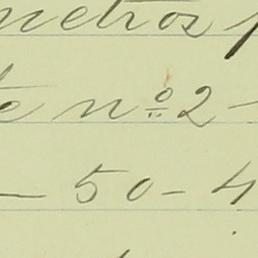 metros
te nº 2 -
- 50 - 4